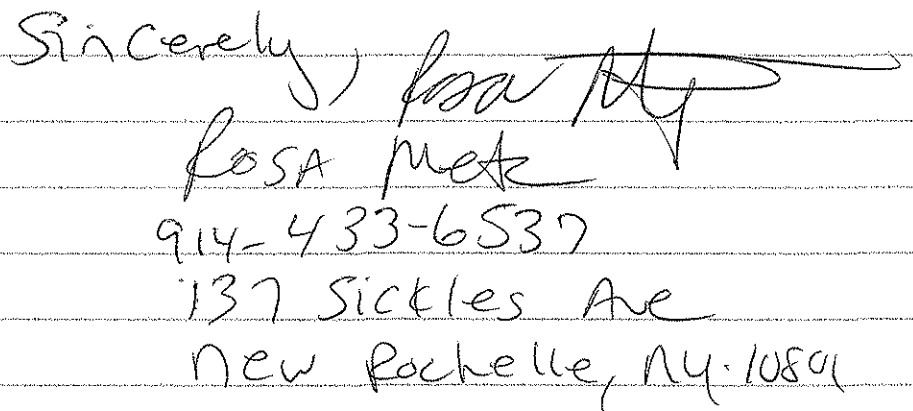 Sincerely, Rosa
Rosa Metz
914-433-6537
137 Sickles Ave
New Rochelle, NY. 10801